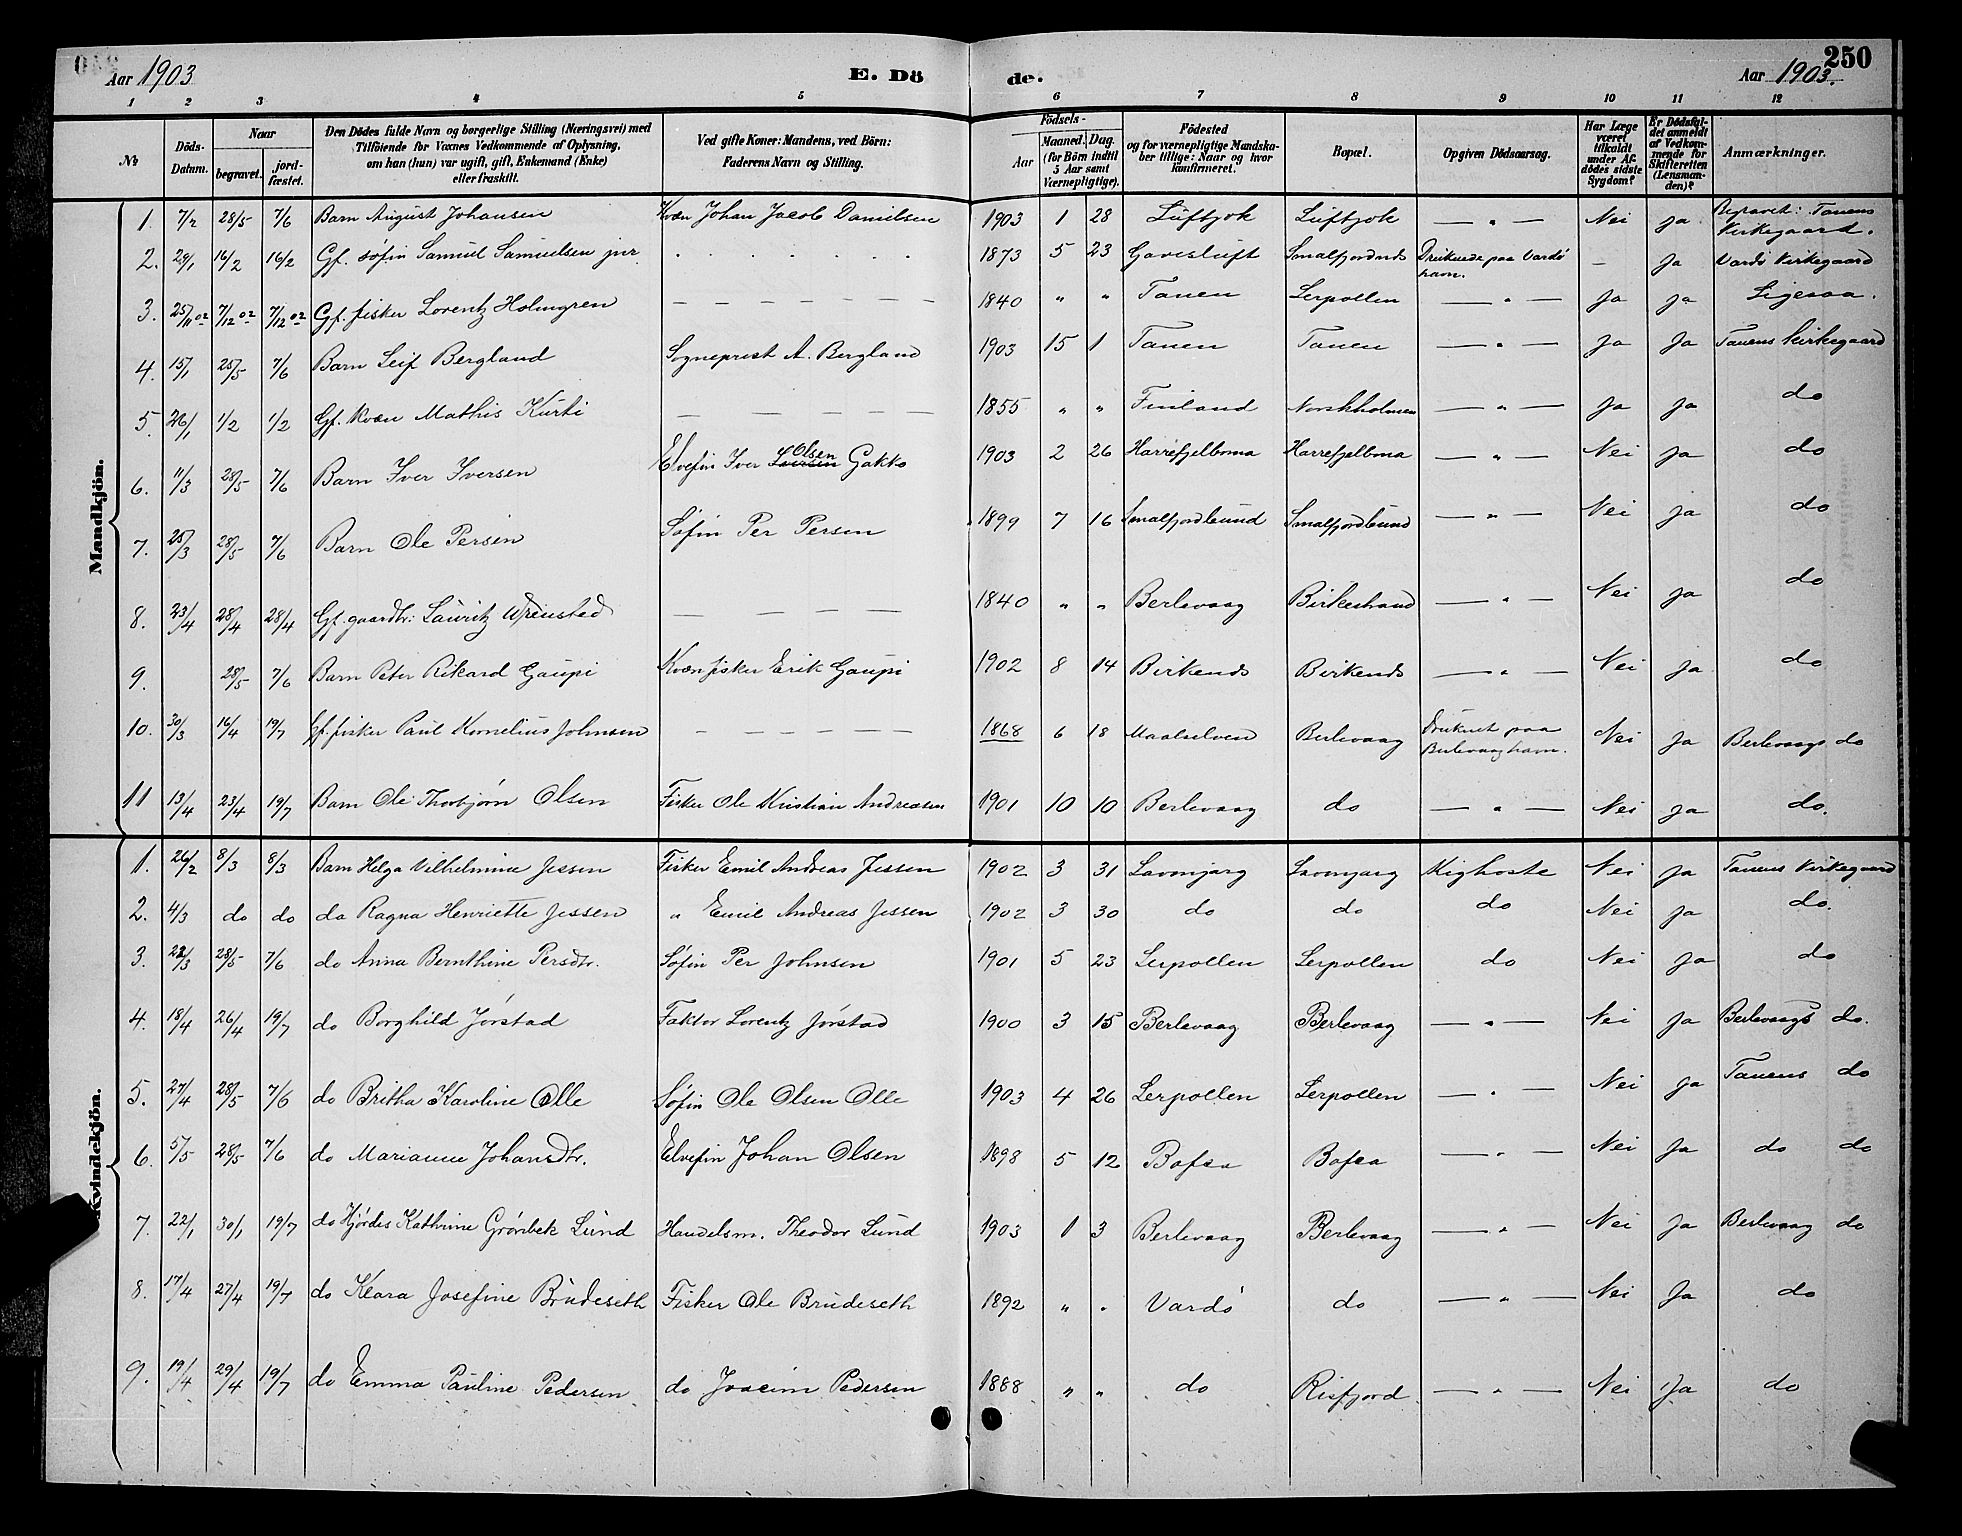 250
Aar 1903
E. Dö
de.
Aar 1903.
1 2 3 4 5 6 7 8 9 10 11 12
No
Döds-Datum.
Naar
begravet.
jord-fæstet.
Den Dödes fulde Navn og borgerlige Stilling (Næringsvei) med
Tilföiende for Voxnes Vedkommende af Oplysning,
om han (hun) var ugift, gift, Enkemand (Enke)
eller fraskilt.
Ved gifte Koner: Mandens, ved Börn:
Faderens Navn og Stilling.
Födsels-
Aar
Maaned. Dag.
(for Börn indtil
5 Aar samt
Værnepligtige).
Födested
og for værnepligtige Mandska-
ber tillige: Naar og hvor
konfirmeret.
Bopæl.
Opgiven Dödsaarsag.
Har Læge
været
tilkaldt
under Af-
dödes sidste
Sygdom?
Er Dödsfal-
det anmeldt
af Vedkom-
mende for
Skifteretten
(Lensman-
den)?
Anmærkninger.
Mandkjön.
1. 7/2 28/5 7/6 Barn August Johansen Kvæn Johan Jacob Danielsen 1903 1 28 Luftjok Luftjok — " — Nei Ja Begravet: Tanens Kirkegaard.
2. 29/1 16/2 16/2 Gf. søfin Samuel Samuelsen jnr 1873 5 23 Gavesluft Smalfjordnds Druknede paa Vardö havn. — Ja Vardö Kirkegaard
3. 25/11 02 7/12 02 7/12 02 Gf. fisker Lorentz Holmgren 1840 " " Tanen Lerpollen — " — Ja Ja Ligesaa.
4. 15/1 25/5 7/6 Barn Leif Bergland Sogneprest A. Bergland 1903 15 1 Tanen Tanen — " — Ja Ja Tanens Kirkegaard
5. 26/1 1/2 1/2 Gf. Kvæn Mathis Kurti 1855 " " Finland Norskholmen — " — Ja Ja do
6. 11/3 28/5 7/6 Barn Iver Iversen Elvefin Iver Iversen Olsen Gakko 1903 2 26 Harrefjelbma Harrefjelbma — " — Nei Ja do
7. 25/3 28/5 7/6 Barn Ole Persen Søfin Per Persen 1899 7 16 Smalfjordbund Smalfjordbund — " — Nei Ja do
8. 23/4 28/4 28/4 Gf. gaardbr: Lauritz 1840 " " Berlevaag Birkestrand — " — Nei Ja do
9. 28/5 7/6 Barn Peter Rikard Gaupi Kvæn fisker Erik Gaupi 1902 8 14 Birkends Birkends — " — Nei Ja do
10. 30/3 16/4 19/7 Gf. fisker Paul Kornelius Johnsen 1868 6 18 Maalselven Berlevaag Druknet paa Berlevaag havn. Nei Ja Berlevaags do
11 13/4 23/4 19/7 Barn Ole Thorbjørn Olsen Fisker Ole Kristian Andreasen 1901 10 10 Berlevaag do — " — Nei Ja do.
Kvindekjön.
1. 26/2 8/3 8/3 Barn Helga Vilhelmine Jessen Fisker Emil Andreas Jessen 1902 3 31 Lavonjarg Lavonjarg Kighoste Nei Ja Tanens Kirkegaard
2. 4/3 do do do Ragna Henriette Jessen " Emil Andreas Jessen 1902 3 30 do do do Nei Ja do.
3. 23/3 28/5 7/6 do Anna Bernthine Persdtr. Søfin Per Johnsen 1901 5 23 Lerpollen Lerpollen do Nei Ja do
4. 18/4 26/4 19/7 do Borghild Jørstad Faktor Lorentz Jørstad 1900 3 15 Berlevaag Berlevaag — " — Nei Ja Berlevaags do.
5. 27/4 28/5 7/6 do Britha Karoline Olle Søfin Ole Olsen Olle 1903 4 26 Lerpollen Lerpollen — " Nei Ja Tanens do
6. 5/5 28/5 7/6 do Marianne Johansdtr. Elvefin Johan Olsen 1898 5 12 Bofsa Bofsa — " — Nei Ja do do
7. 22/1 30/1 19/7 do Hjørdis Kathrine Grønbek Lund Handelsm. Theodor Lund 1903 1 3 Berlevaag Berlevaag — " — Nei Ja Berlevaag do
8. 17/4 27/4 19/7 do Klara Josefine Brudeseth Fisker Ole Brudeseth 1892 " " Vardö do — " — Nei Ja do
9. 19/4 29/4 19/7 do Emma Pauline Pedersen do Joacim Pedersen 1888 " " do Risfjord — " — Nei Ja do